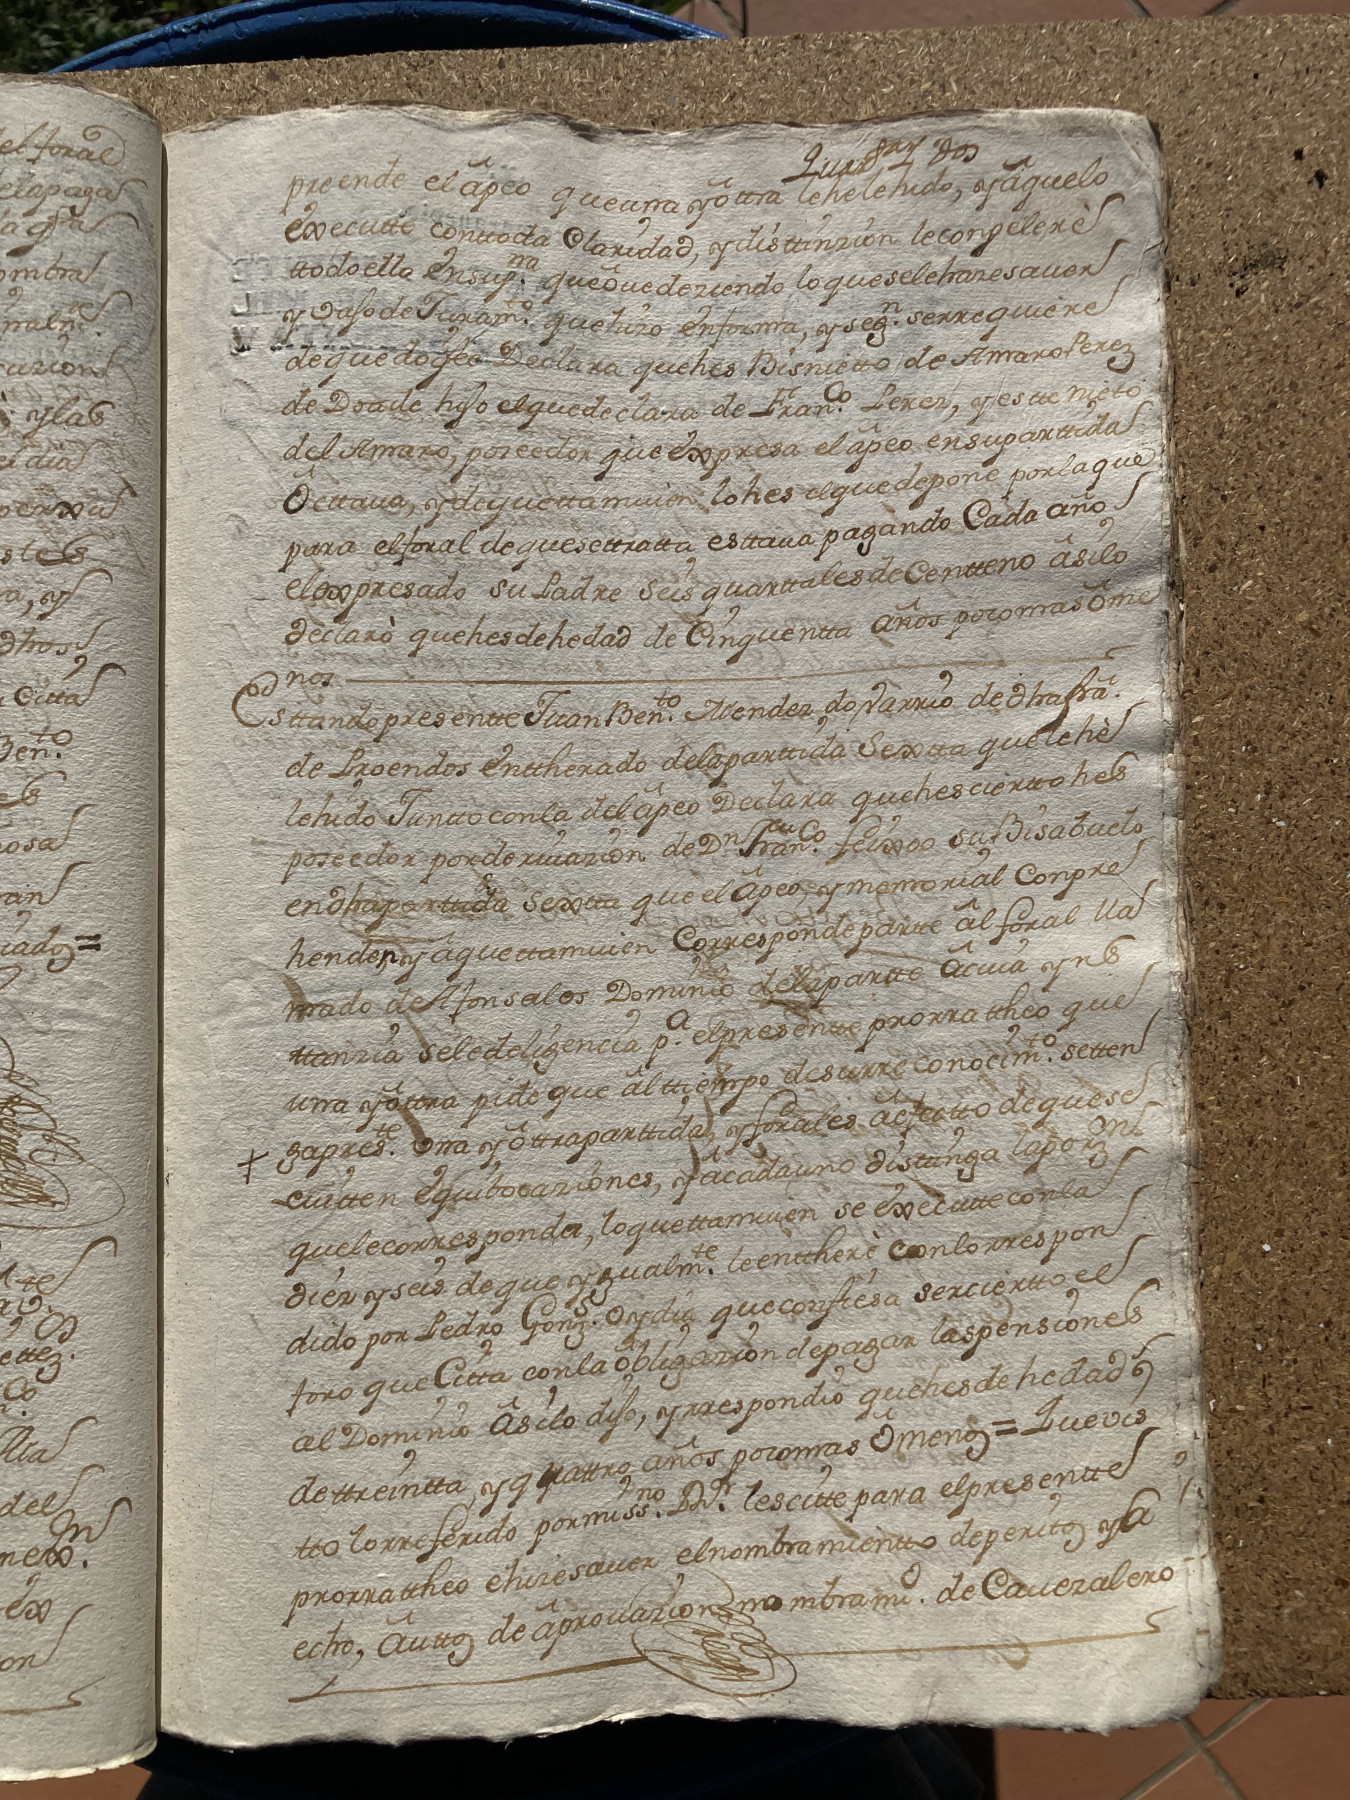 Quar.ta y dos
preende el âpeo que una yôtra lehelehido, yâquelo
êxecutte conttoda Claridad, ydisttinzion leconpelerè
ttodoella ênsup.na queôvedeziendo loqueselehazesaver
y vajode Juram.to quehizo ênforma, y seg.n serrequiere
dequedoyfeê Declara quehes Bisnietto de Amaro Perez
de Dsade hijo elquedeclara de Fran.co Perez, yeste nieto
del Amaro, poseedor que êxpresa el âpeo ensuparttida
Ôcttava, ydequettamvien lohes elquedepone porlaque
para elforal dequesettratta esttava pagando Cada año
elexpresado su Padre Seis quarttales de Centteno âsilo
declarò quehesdehedad de Cinquentta años pocomas ôme
nos
Esttandopresentte Juan Ben.to Mendez do varrio de dha fra.
de Proendos êntherado delapartida Sextta quelehè
lehido Juntto conla del âpeo Declara quehescierto hes
poseedor porderivazion de Dn Fran.co feixoo su Bisabuelo
endhaparttida Sextta que el âpeo, y memorial Conpre
henden, yâquettamvien Corresponde parte âl foral lla
mado de Afonsalos Dominio delapartte âcuia yns
ttanzia seledeligencia p.a elpresentte prorratheo que
una yôttra pide que âl ttiempo desurreconocim.to setten
gapres.te una yôttraparttida, yforales âefectto dequese
êvitten êquibocaziones, yâcadauno disttinga laporz.on
quelecorresponda, loquettamvien se êxecutte conla
diez yseis deque yqualm.te lentherè conlorrespon
dido por Pedro Gonz. oydia queconfiesa sercierto el
foro queCitta conla ôbligazion depagar laspensiones
al Dominio âsilo dijo, yrrespondiò quehesdehedad
dettreintta, yquattro años pocomas ômenos = Quevis
tto lorreferido pormiss.no Dn. lescitte para elpresentte
prorratheo ehizesaver elnombramientto deperitos yla
echo, âuttos de âprovazion, nombrami.o de Cavezalero